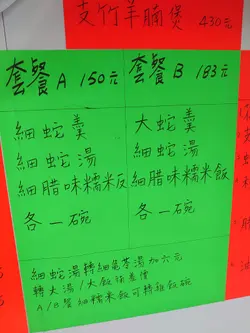 支竹羊腩煲 430元
套餐A 150元
細蛇羹
細蛇湯
細腊味糯米飯
各一碗
套餐B 183元
大蛇羹
細蛇湯
細腊味糯米飯
各一碗
細蛇湯轉細龜苓湯加六元
轉大湯/大飯補差價
A/B餐細糯米飯可轉雞飯碗